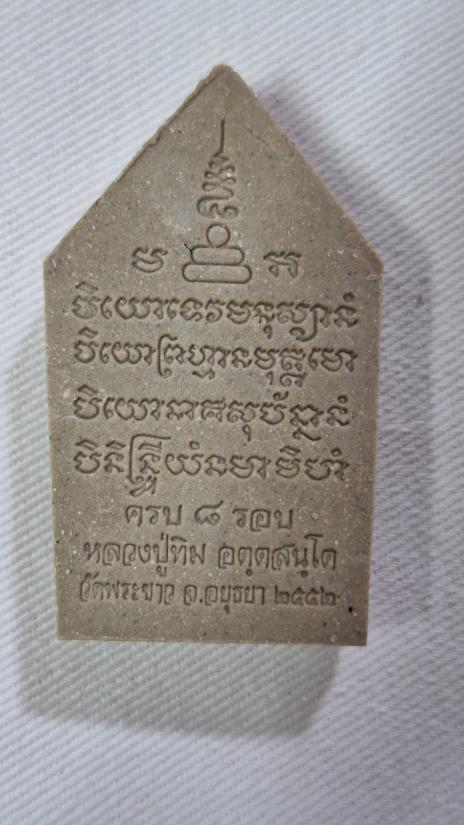 បិយោទេវមនុស្សានំ
បិយោព្រហ្មានមុត្តមោ
បិយោនាគសុបណ្ណានំ
បិនិន្ទ្រិយំនមាមិហំ
ครบ ๘ รอบ
หลวงปู่ทิม อตฺตสนฺโต
วัดพระขาว จ.อยุธยา ๒๕๕๒